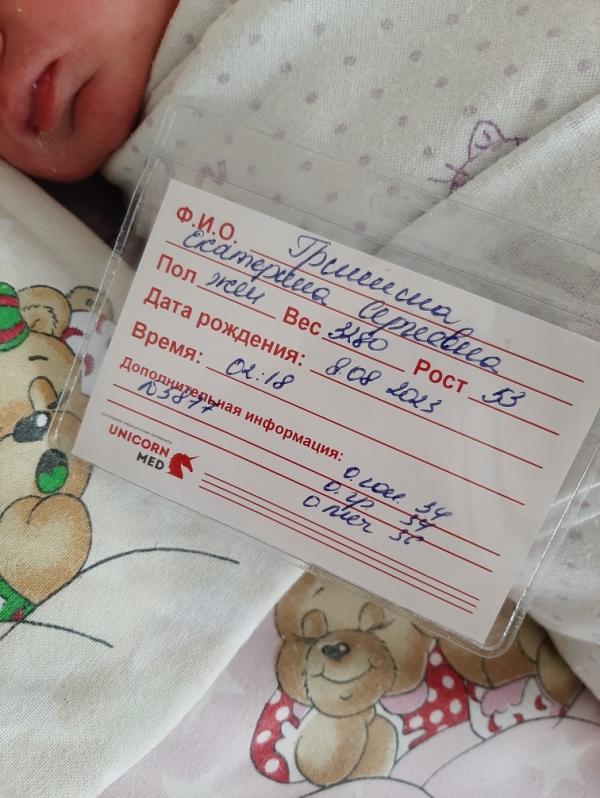 Ф.И.О. Гришина
Екатерина Сергеевна
Пол жен Вес 3280 Рост 53
Дата рождения: 8.08 2023
Время: 02:18
Дополнительная информация:
N 3877
о.гол. 34
о.гр 34
о.плеч 36
UNICORN
MED